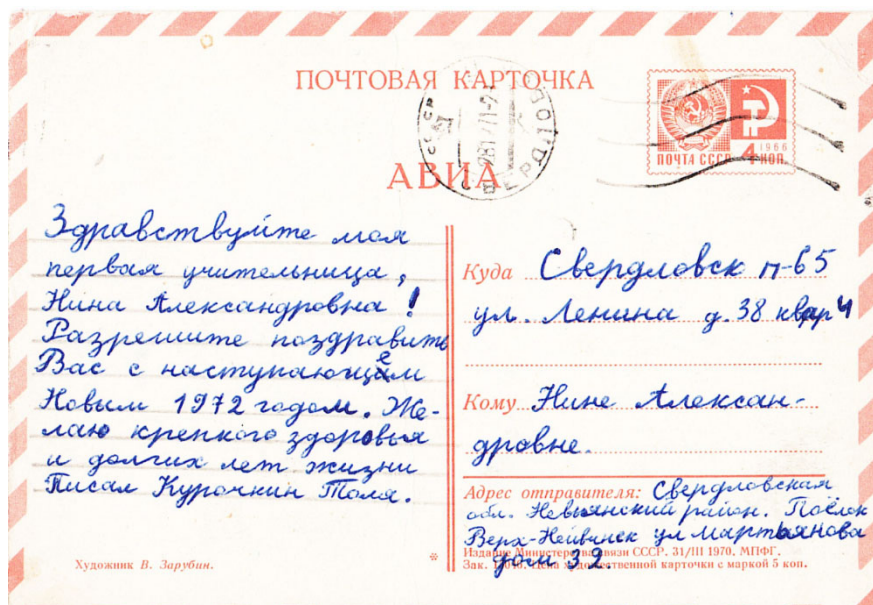 ПОЧТОВАЯ КАРТОЧКА
АВИА
1966
ПОЧТА СССР 4 КОП.
Здравствуйте моя
первая учительница,
Нина Александровна!
Разрешите поздравить
Вас с наступающем
Новым 1972 годом. Же-
лаю крепкого здоровья
и долгих лет жизни
Писал Курочкин Толя.
Художник В. Зарубин.
*
Куда Свердловск п-65
ул. Ленина д. 38 квар 4
Кому Нине Алексан-
дровне.
Адрес отправителя: Свердловская
обл. Невьянский район. Посёлок
Верх-Нейвинск ул Мартьянова
дом 32.
Издание Министерства связи СССР. 31/III 1970. МПФГ.
Зак. Цена художественной карточки с маркой 5 коп.